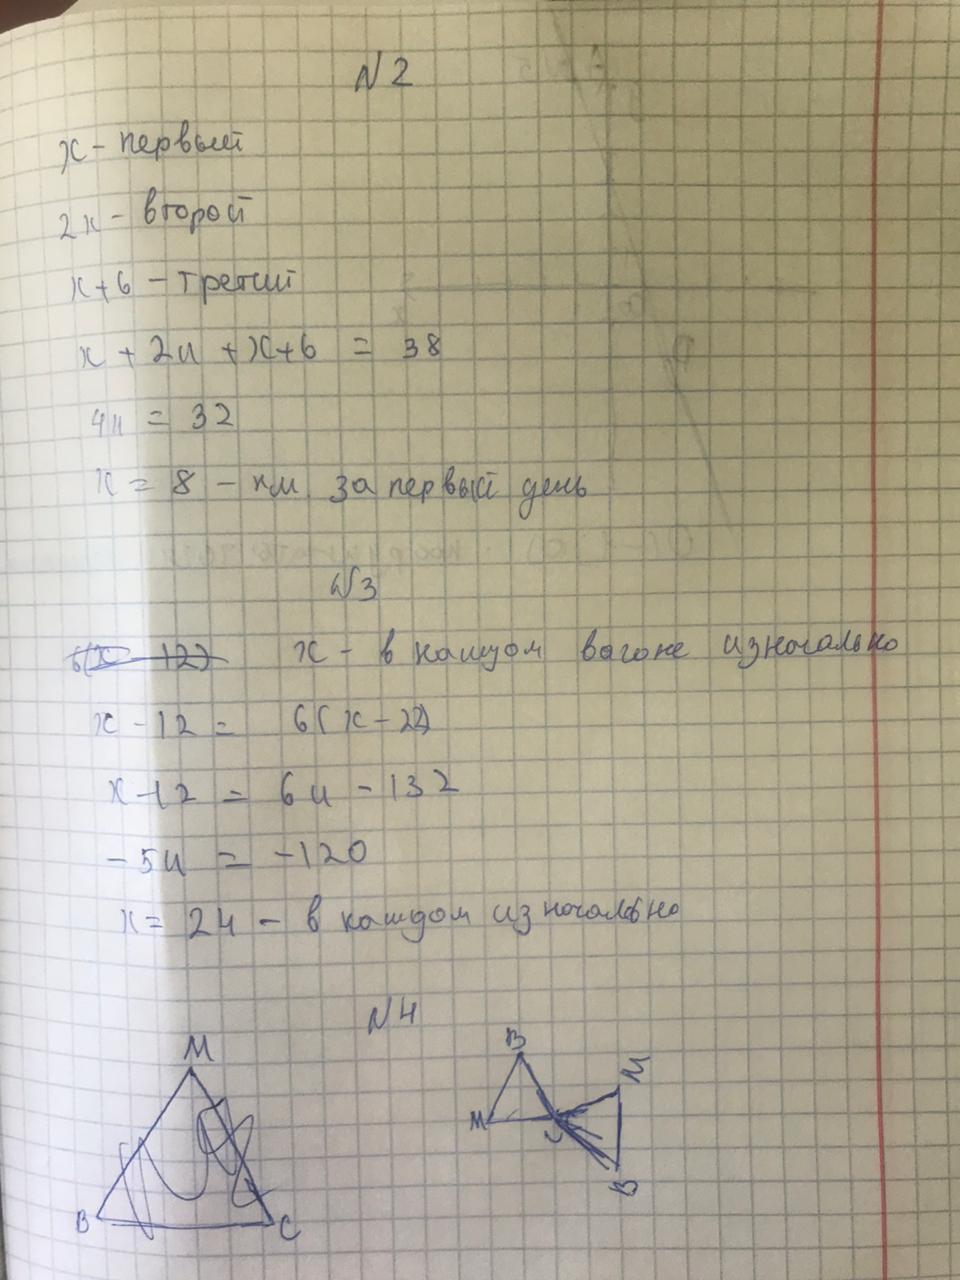 N2
x - первый
2x - второй
x+6 - третий
x + 2x + x+6 = 38
4x = 32
x = 8 - км за первый день
N3
6(x - 12) x - в каждом вагоне изночально
x - 12 = 6(x - 22)
x - 12 = 6x - 132
-5x = -120
x = 24 - в каждом изночально
N4
M B M
M C
B C B